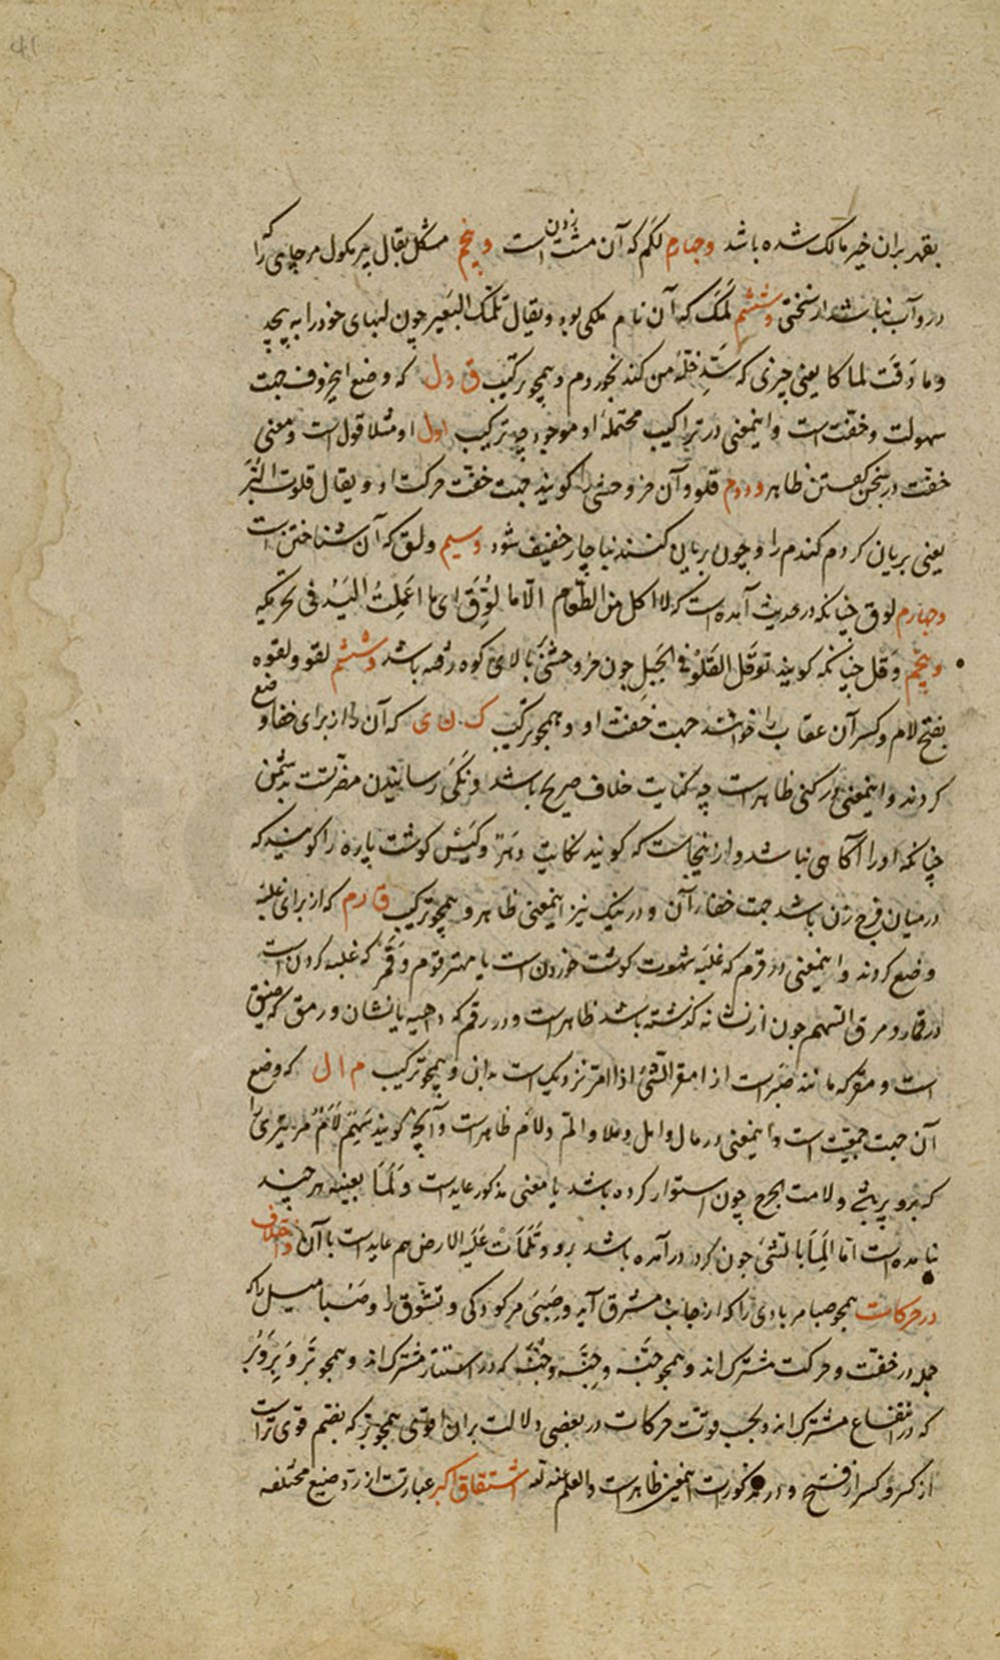 بقهر بران خیر مالک شده باشد وچهارم لکم که آن مشت زدن است وپنجم مکل یقال بیر مکول مر چاهی را که
درو آب نباشد از سختی وششم لمک که آن نام ملکی بود ویقال تلمک البعیر چون لبهای خود را به پیچد
وما ذقت لماکا یعنی چیزی که سد خله من کند نخوردم وهمچو ترکیب ق ول که وضع این حروف جهت
سهولت وخفت است واینمعنی در تراکیب محتملهٔ او موجود چه ترکیب اول او مثلا قول است ومعنی
خفت در سخن گفتن ظاهر ودوم قلو وآن خر وحشی را گویند جهت خفت حرکت او ویقال قلوت البر
یعنی بریان کردم گندم را وچون بریان کنند ناچار خفیف شود وسیم ولق که آن شتافتن است
وچهارم لوق چنانکه در حدیث آمده است که لا اکل من الطعام الا ما لوق لی ای ما اعملت الید فی تحریکه
وپنجم وقل چنانکه گویند توقل الوعل فی الجبل چون خر وحشی بالای کوه رفته باشد وششم لقو ولقوه
بفتح لام وکسر آن عقاب را خوانند جهت خفت او وهمچو ترکیب ک ن ی که آن را از برای خفا وضع
کردند واینمعنی در کنی ظاهر است چه کنایت خلاف صریح باشد ونکی رسانیدن مضرتست بدشمن
چنانکه او را آگاهی نباشد وازینجاست که گویند نکایت وکین گوشت پاره را گویند که
در میان فرج زن باشد جهت خفاء آن ودر نیک نیز اینمعنی ظاهر وهمچو ترکیب ق رم که از برای غلبه
وضع کردند واینمعنی در قرم که غلبه شهوت گوشت خوردن است یا مهتر قوم وقمر که غلبه کردن است
در قمار ومرق السهم چون از نشانه گذشته باشد ظاهر است ودر رقم که داهیه یا نشان ورمق که ضیق
است ومقر که مانند صبر است از امقر الشئ اذا امر نزدیک است بدان وهمچو ترکیب م ا ل که وضع
آن جهت جمعیت است واینمعنی در مال وامل وملا والم ولام ظاهر است وآنچه گویند سهم لام مر تیری را
که برو پر باشد ولامت الجرح چون استوار کرده باشد با معنی مذکور عاید است ولما بعینه هر چند
نیامده است اما الما بالشئ چون گرد در آمده باشد برو وتلمات علیه الارض هم عاید است با آن واختلاف
در حرکات همچو صبا مر بادی را که از جانب مشرق آید وصبی مر کودکی وتشوق را وصبا میل را که
جمله در خفت وحرکت مشترک اند وهمچو جنه وجنه وجنه که در استتار مشترک اند وهمچو بر وبر وبر
که در انتفاع مشترک اند وبحسب قوت حرکات در بعضی دلالت بران اقوی همچو بر که بضم قوی تر است
از کسر وکسر از فتح ودر مذکورات اینمعنی ظاهر است والعلم عنده تعالی اشتقاق اکبر عبارتست از رد صیغ مختلفه